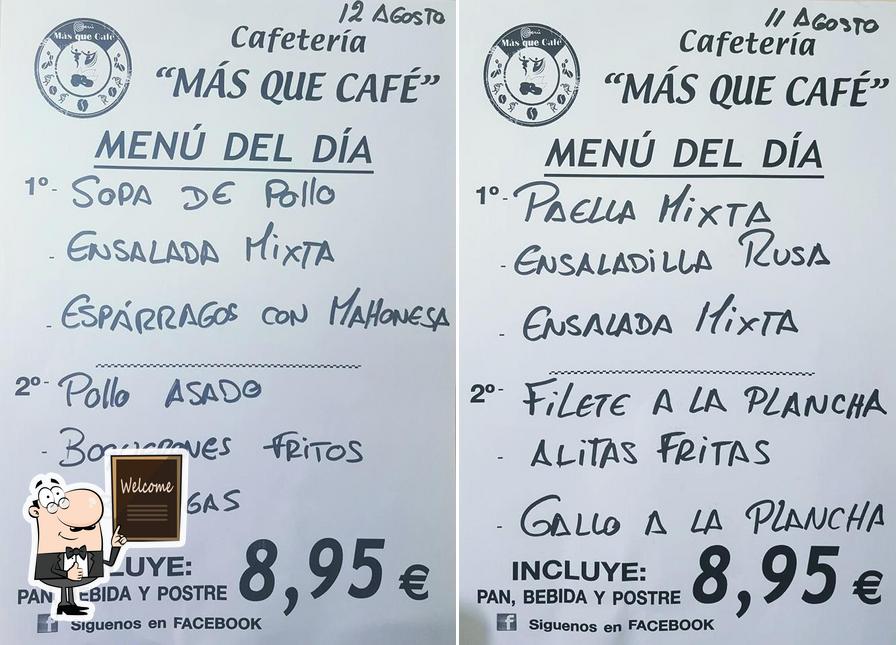 12 AGOSTO
Más que Café
Cafetería
"MÁS QUE CAFÉ"
MENÚ DEL DÍA
1º- SOPA DE POLLO
- ENSALADA MIXTA
- ESPÁRRAGOS CON MAHONESA
2º- POLLO ASADO
- FRITOS
Welcome
8,95 €
PAN, EBIDA Y POSTRE
Siguenos en FACEBOOK
11 AGOSTO
Más que Café
Cafetería
"MÁS QUE CAFÉ"
MENÚ DEL DÍA
1º- PAELLA MIXTA
- ENSALADILLA RUSA
- ENSALADA MIXTA
2º- FILETE A LA PLANCHA
- ALITAS FRITAS
- GALLO A LA PLANCHA
INCLUYE:
PAN, BEBIDA Y POSTRE
8,95 €
Siguenos en FACEBOOK